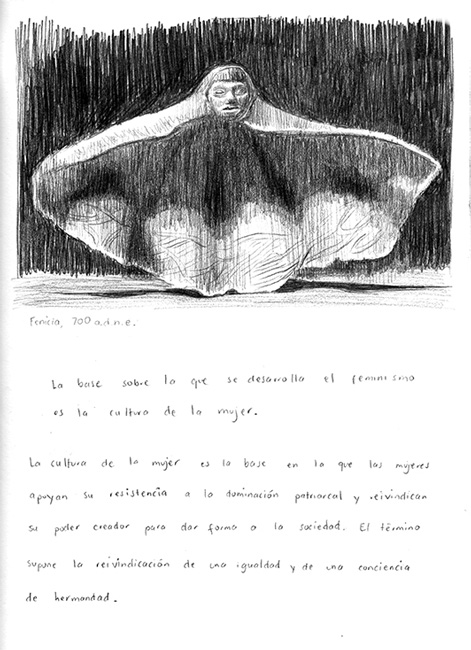 Fenicia, 700 a.d.n.e.
La base sobre la que se desarrolla el feminismo
es la cultura de la mujer.
La cultura de la mujer es la base en la que las mujeres
apoyan su resistencia a la dominación patriarcal y reivindican
su poder creador para dar forma a la sociedad. El término
supone la reivindicación de una igualdad y de una conciencia
de hermandad.